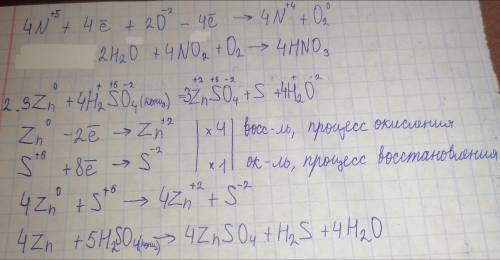 4N⁺⁵ + 4ē + 2O⁻² - 4ē → 4N⁺⁴ + O₂⁰
2H₂O + 4NO₂ + O₂ → 4HNO₃
2. 3Zn⁰ + 4H₂⁺S⁺⁶O₄⁻²(конц) = 3Zn⁺²S⁺⁶O₄⁻² + S + 4H₂⁺O⁻²
Zn⁰ - 2ē → Zn⁺² | x4 | восс-ль, процесс окисления
S⁺⁶ + 8ē → S⁻² | x1 | ок-ль, процесс восстановления
4Zn⁰ + S⁺⁶ → 4Zn⁺² + S⁻²
4Zn + 5H₂SO₄(конц) → 4ZnSO₄ + H₂S + 4H₂O